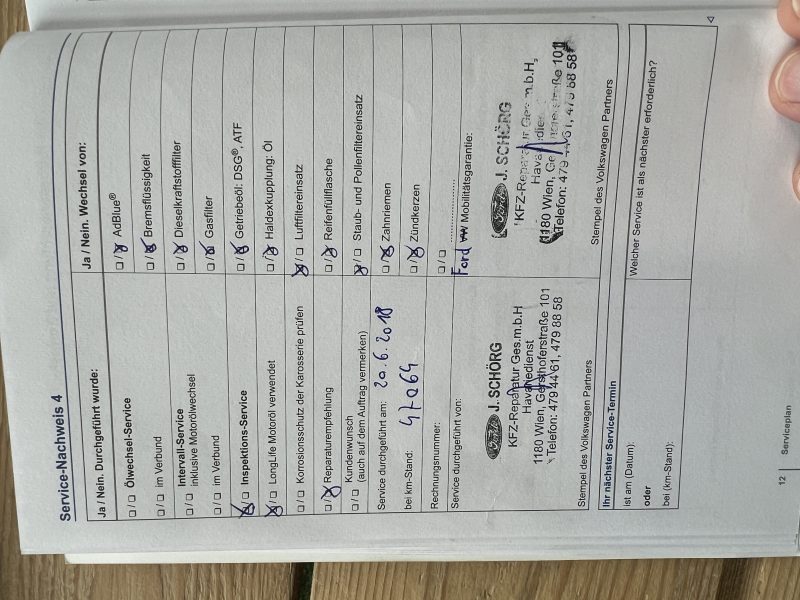 Service-Nachweis 4
Ja / Nein. Durchgeführt wurde:
☐/☐ Ölwechsel-Service
☐/☐ im Verbund
☐/☐ Intervall-Service
inklusive Motorölwechsel
☐/☐ im Verbund
☒/☐ Inspektions-Service
☒/☐ LongLife Motoröl verwendet
☐/☐ Korrosionsschutz der Karosserie prüfen
☐/☒ Reparaturempfehlung
☐/☐ Kundenwunsch
(auch auf dem Auftrag vermerken)
Service durchgeführt am: 20.6.2018
bei km-Stand: 47064
Rechnungsnummer:
Service durchgeführt von:
Ford J. SCHÖRG
KFZ-Reparatur Ges.m.b.H
Havariedienst
1180 Wien, Gersthoferstraße 101
Telefon: 479 44 61, 479 88 58
Stempel des Volkswagen Partners
Ja / Nein. Wechsel von:
☐/☒ AdBlue®
☐/☒ Bremsflüssigkeit
☐/☒ Dieselkraftstofffilter
☐/☒ Gasfilter
☐/☒ Getriebeöl: DSG®, ATF
☐/☒ Haldexkupplung: Öl
☒/☐ Luftfiltereinsatz
☐/☒ Reifenfüllflasche
☒/☐ Staub- und Pollenfiltereinsatz
☐/☒ Zahnriemen
☐/☒ Zündkerzen
☐/☐ ........................
Ford VW Mobilitätsgarantie:
Ford J. SCHÖRG
KFZ-Reparatur Ges.m.b.H,
1180 Wien, 101
Telefon: 479 44 61, 479 88 58
Stempel des Volkswagen Partners
Ihr nächster Service-Termin
ist am (Datum):
oder
bei (km-Stand):
Welcher Service ist als nächster erforderlich?
12 Serviceplan